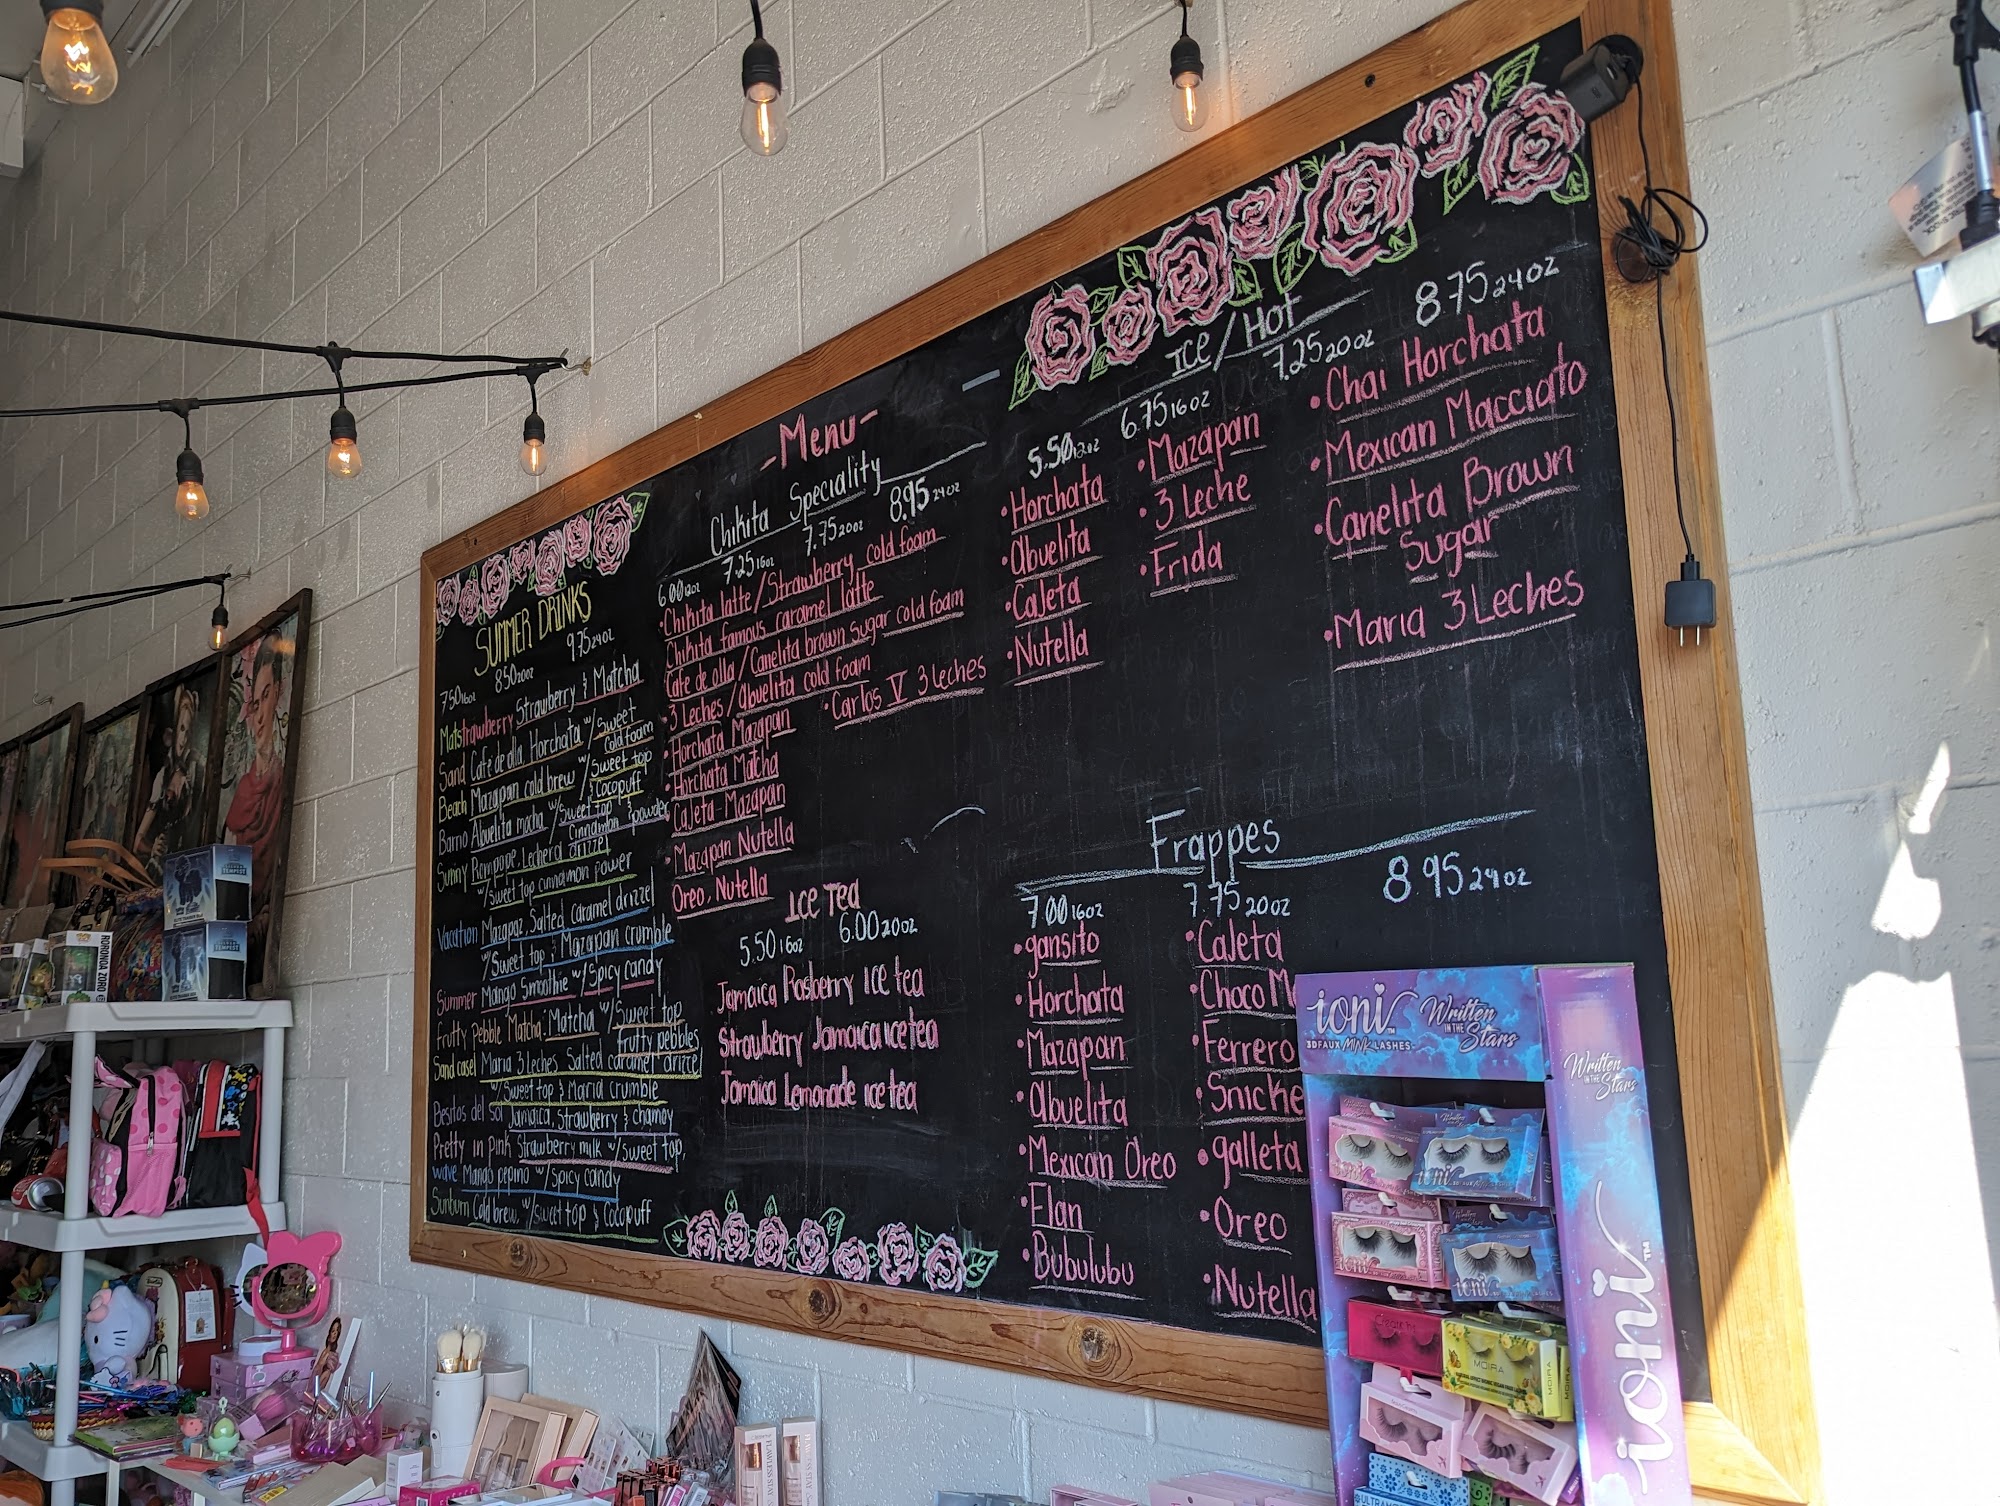 -Menu-
SUMMER DRINKS
7.50 16oz 8.50 20oz 9.75 24oz
Matstrawberry Strawberry & Matcha
Sand Café de olla, Horchata w/ Sweet
Cold foam
Beach Mazapan cold brew w/ Sweet top
& Cocopuff
Barrio Abuelita mocha w/ Sweet top &
Cinnamon powder
Sunny Rompope, Lechera drizzel
w/ sweet top cinnamon power
Vacation Mazapaz, Salted Caramel drizzel
w/ Sweet top & Mazapan crumble
Summer Mango Smoothie w/ Spicy candy
Fruity pebble Matcha: Matcha w/ Sweet top
fruity pebbles
Sand casel Maria 3 Leches Salted caramel drizzel
w/ Sweet top & Maria crumble
Besitos del sol Jamaica, Strawberry & chamoy
Pretty in pink Strawberry milk w/ sweet top,
wave Mango pepino w/ Spicy candy
Sunburn Cold brew, w/ sweet top & Cocopuff
Chikita Speciality
6.00 12oz 7.25 16oz 7.75 20oz 8.95 24oz
• Chikita latte / Strawberry cold foam
Chikita famous caramel latte
Cafe de olla / Canelita brown sugar cold foam
• 3 Leches / abuelita cold foam
• Carlos V 3 leches
• Horchata Mazapan
• Horchata Matcha
Cajeta-Mazapan
• Mazapan Nutella
Oreo, Nutella
Ice Tea
5.50 16oz 6.00 20oz
Jamaica Rasberry Ice tea
Strawberry Jamaica ice tea
Jamaica Lemonade ice tea
Ice/Hot
5.50 12oz 6.75 16oz 7.25 20oz 8.75 24oz
• Horchata
• abuelita
• Cajeta
• Nutella
• Mazapan
• 3 Leche
• Frida
• Chai Horchata
• Mexican Macciato
• Canelita Brown
Sugar
• Maria 3 Leches
Frappes
7.00 16oz 7.75 20oz 8.95 24oz
• gansito
• Horchata
• Mazapan
• abuelita
• Mexican Oreo
• Flan
• Bubulubu
• Cajeta
• Choco M
• Ferrero
• Snicke
• galleta
• Oreo
• Nutella
ioni™ Written
IN THE
Stars
3D FAUX MINK LASHES
Written
IN THE
Stars
ioni™
ioni
ioni
MOIRA
MOIRA
RORONOA ZORO
TEMPEST
TEMPEST